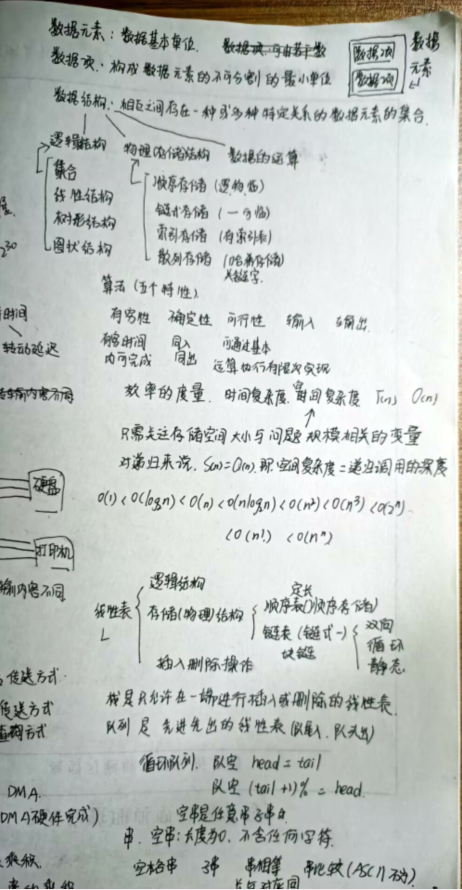 数据元素：数据基本单位.
数据项：构成数据元素的不可分割的最小单位
数据项
数据项
数据
元素
数据结构：相互之间存在一种或多种特定关系的数据元素的集合.
逻辑结构 物理(存储)结构 数据的运算
集合
线性结构
树形结构
图状结构
顺序存储
链式存储
索引存储 (有索引表)
散列存储 (哈希存储)
关键字.
2^30
算法 (五个特性).
有穷性 确定性 可行性 输入 输出.
有穷时间 同入 可通过基本
内可完成 同出 运算执行有限次实现
时间
转动延迟
内容不同
效率的度量. 时间复杂度. 空间复杂度 T(n) O(n)
只需关注存储空间大小与问题规模相关的变量
对递归来说. S(n)=O(n). 即空间复杂度=递归调用的深度
O(1) < O(log₂n) < O(n) < O(nlog₂n) < O(n²) < O(n³) < O(2ⁿ)
< O(n!) < O(nⁿ)
硬盘
打印机
内容不同
线性表
逻辑结构
存储(物理)结构
插入删除操作
定长
顺序表(顺序存储)
链表 (链式~)
块链
双向
循环
静态
传送方式
传送方式
查询方式
栈是只允许在一端进行插入或删除的线性表.
队列是先进先出的线性表 (队尾入. 队头出)
循环队列. 队空 head = tail
队空 (tail+1)% = head.
DMA
DMA硬件完成)
空串是任意串子串.
串. 空串：长度为0. 不含任何字符.
空格串 子串 串相等 串比较 (ASCII